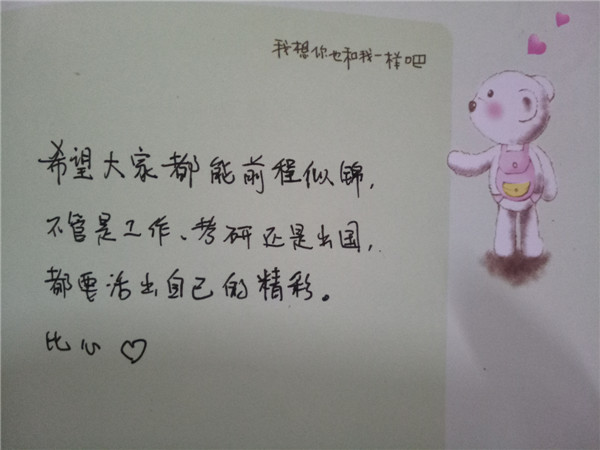 我想你也和我一样吧
希望大家都能前程似锦,
不管是工作、考研还是出国,
都要活出自己的精彩。
比心♡